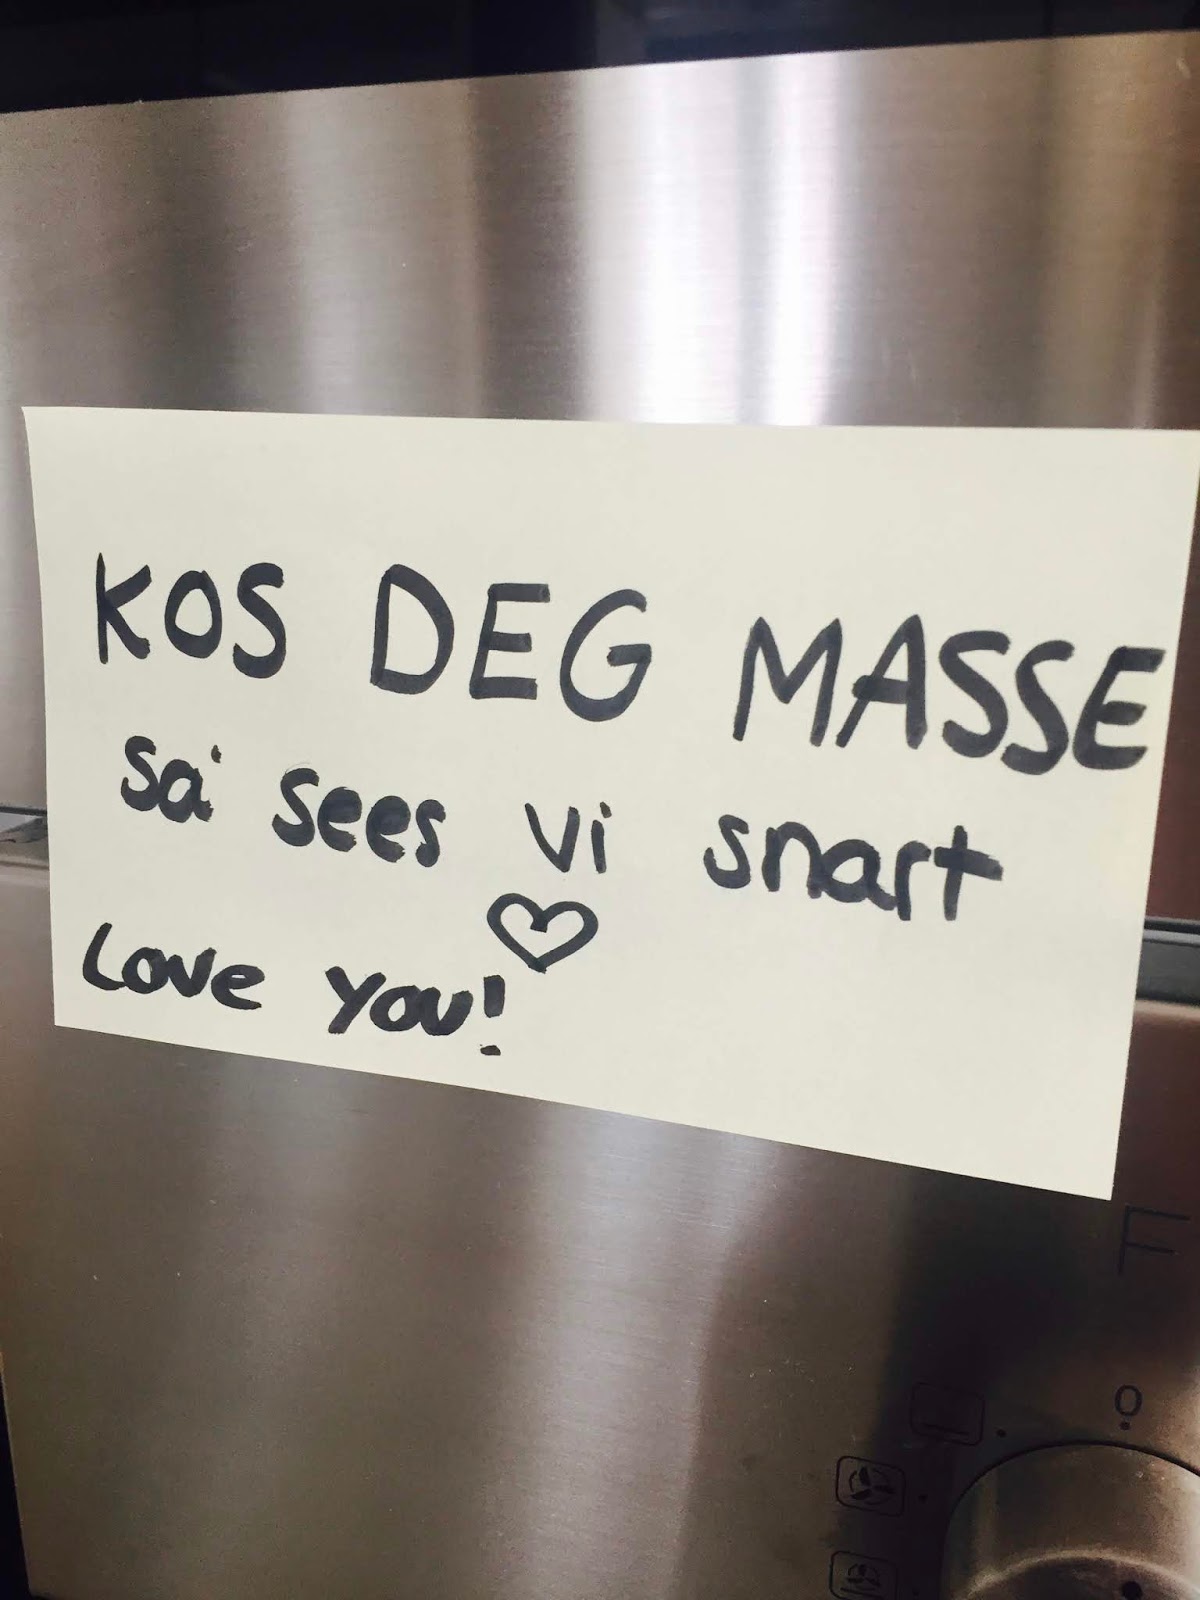 KOS DEG MASSE
så sees vi snart
♡
Love you!
F
0